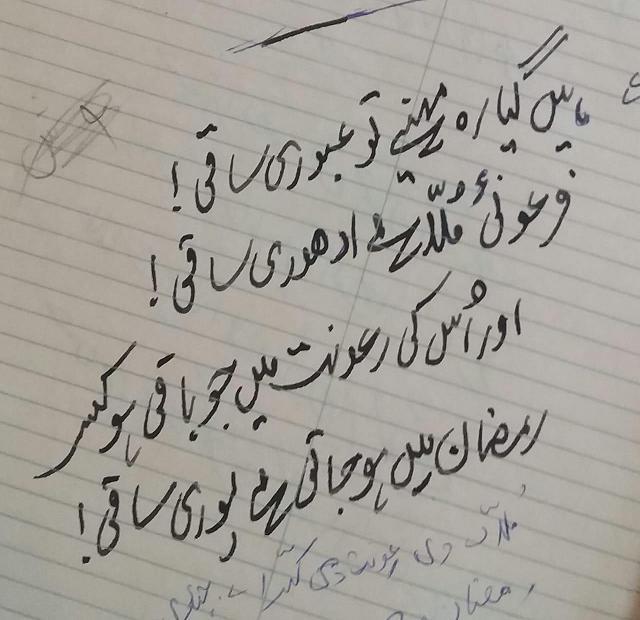 ہاں گیارہ مہینے تو عبوری ساقی!
فرعونئ مُلّا ہے ادھوری ساقی!
اور اُس کی رعونت میں جو باقی ہو کسر
رمضان میں ہو جاتی ہے پوری ساقی!
رمضان